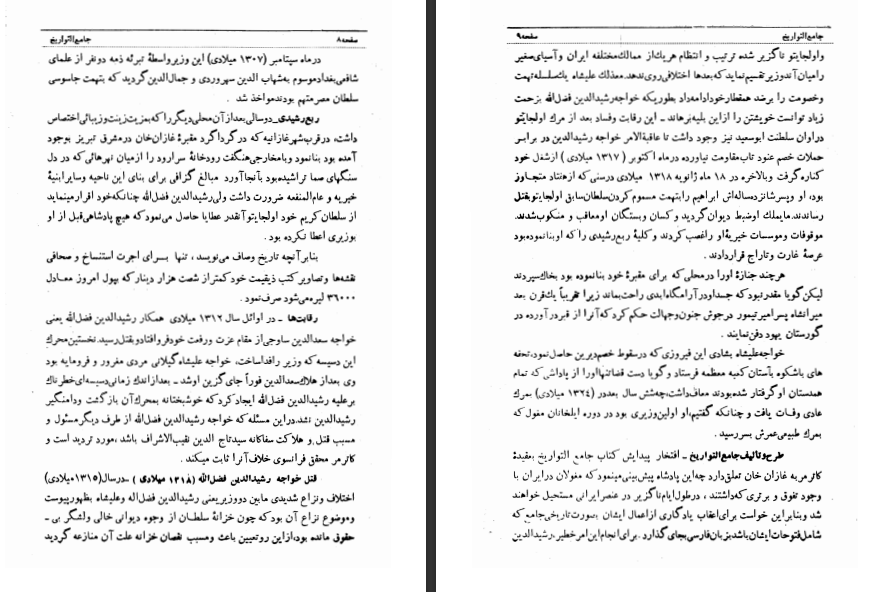 صفحه ۸ جامع التواریخ
در ماه سپتامبر (۱۳۰۷ میلادی) این وزیر واسطهٔ تبرئه ذمه دو نفر از علمای
شافعی بغداد موسوم به شهاب الدین سهروردی و جمال الدین گردید که بتهمت جاسوسی
سلطان مصر متهم بودند مواخذ شد .
ربع رشیدی ـ دو سالی بعد از آن محلی دیگر را که بمزیت زینت و زیبائی اختصاص
داشت، در قرب شهر غازانیه که در گرداگرد مقبرهٔ غازان خان در مشرق تبریز بوجود
آمده بود بنا نمود و با مخارجی هنگفت رودخانهٔ سراورود را از میان نهرهائی که در دل
سنگهای صما تراشیده بود بآنجا آورد مبالغ گزافی برای بنای این ناحیه و سایر ابنیهٔ
خیریه و عام المنفعه ضرورت داشت ولی رشید الدین فضل الله چنانکه خود اقرار مینماید
از سلطان کریم خود اولجایتو آنقدر عطایا حاصل می نمود که هیچ پادشاهی قبل از او
بوزیری اعطا نکرده بود .
بنا بر آنچه تاریخ وصاف می نویسد ، تنها برای اجرت استنساخ و صحافی
نقشه‌ها و تصاویر کتب ذیقیمت خود کمتر از شصت هزار دینار که بپول امروز معادل
۳۶۰۰۰ لیره می شود صرف نمود .
رقابت‌ها ـ در اوائل سال ۱۳۱۲ میلادی همکار رشیدالدین فضل الله یعنی
خواجه سعد الدین ساوجی از مقام عزت و رفعت خود فرو افتاد و بقتل رسید. نخستین محرک
این دسیسه که وزیر را فدا ساخت، خواجه علیشاه گیلانی مردی مغرور و فرومایه بود
وی بعد از هلاک سعد الدین فوراً جای گزین او شد ـ بعد از اندک زمانی دسیسه‌ای خطرناک
بر علیه رشید الدین فضل الله ایجاد کرد که خوشبختانه بمحرک آن بازگشت و دامنگیر
رشیدالدین نشد. در این مسئله که خواجه رشیدالدین فضل الله از طرف دیگر مسئول و
مسبب قتل و هلاکت سفاکانه سید تاج الدین نقیب الاشراف باشد ، مورد تردید است و
کاترمر محقق فرانسوی خلاف آنرا ثابت میکند .
قتل خواجه رشید الدین فضل الله (۱۳۱۸ میلادی) ـ در سال (۱۳۱۵ میلادی)
اختلاف و نزاع شدیدی مابین دو وزیر یعنی رشید الدین فضل اله و علیشاه بظهور پیوست
و موضوع نزاع آن بود که چون خزانهٔ سلطان از وجوه دیوانی خالی و لشگر بی ـ
حقوق مانده بود، از این رو تعیین باعث و مسبب نقصان خزانه علت آن منازعه گردید
صفحه ۹ جامع التواریخ
و اولجایتو ناگزیر شده ترتیب و انتظام هر یک از ممالک مختلفه ایران و آسیای صغیر
را میان آندو زیر تقسیم نماید که بعدها اختلافی روی ندهد. معذلک علیشاه یک سلسله تهمت
و خصومت را بر ضد همقطار خود ادامه داد بطوریکه خواجه رشیدالدین فضل الله بزحمت
زیاد توانست خویشتن را از این بلیه برهاند ـ این رقابت و فساد بعد از مرگ اولجایتو
در اوان سلطنت ابوسعید نیز وجود داشت تا عاقبة الامر خواجه رشیدالدین در برابر
حملات خصم عنود تاب مقاومت نیاورده در ماه اکتوبر (۱۳۱۷ میلادی) از شغل خود
کناره گرفت و بالاخره در ۱۸ ماه ژانویه ۱۳۱۸ میلادی در سنی که از هفتاد متجاوز
بود، او و پسر شانزده ساله‌اش ابراهیم را بتهمت مسموم کردن سلطان سابق اولجایتو بقتل
رساندند. مایملک او ضبط دیوان گردید و کسان و بستگان او معاقب و منکوب شدند.
موقوفات و موسسات خیریهٔ او را غصب کردند و کلیهٔ ربع رشیدی را که او بنا نموده بود
عرصهٔ غارت و تاراج قرار دادند .
هر چند جنازهٔ او را در محلی که برای مقبرهٔ خود بنا نموده بود بخاک سپردند
لیکن گویا مقدر نبود که جسد او در آرامگاه ابدی راحت بماند زیرا تقریباً یک قرن بعد
میرانشاه پسر امیر تیمور در جوش جنون و جهالت حکم کرد که آنرا از قبر در آورده در
گورستان یهود دفن نمایند .
خواجه علیشاه بشادی این فیروزی که در سقوط خصم دیرین حاصل نمود، تحفه
های باشکوه بآستان کعبه معظمه فرستاد و گویا دست قضا تنها او را از پاداشی که تمام
همدستان او گرفتار شده بودند معاف داشت، چه شش سال بعد در (۱۳۲۴ میلادی) بمرگ
عادی وفات یافت و چنانکه گفتیم، او اولین وزیری بود در دوره ایلخانان مغول که
بمرگ طبیعی عمرش بسر رسید .
طرح و تالیف جامع التواریخ ـ افتخار پیدایش کتاب جامع التواریخ بعقیدهٔ
کاترمر به غازان خان تعلق دارد چه این پادشاه پیش بینی مینمود که مغولان در ایران با
وجود تفوق و برتری که داشتند ، در طول ایام ناگزیر در عنصر ایرانی مستحیل خواهند
شد و بنابراین خواست برای اعقاب یادگاری از اعمال ایشان بصورت تاریخی جامع که
شامل فتوحات ایشان باشد بزبان فارسی بجای گذارد . برای انجام این امر خطیر، رشیدالدین